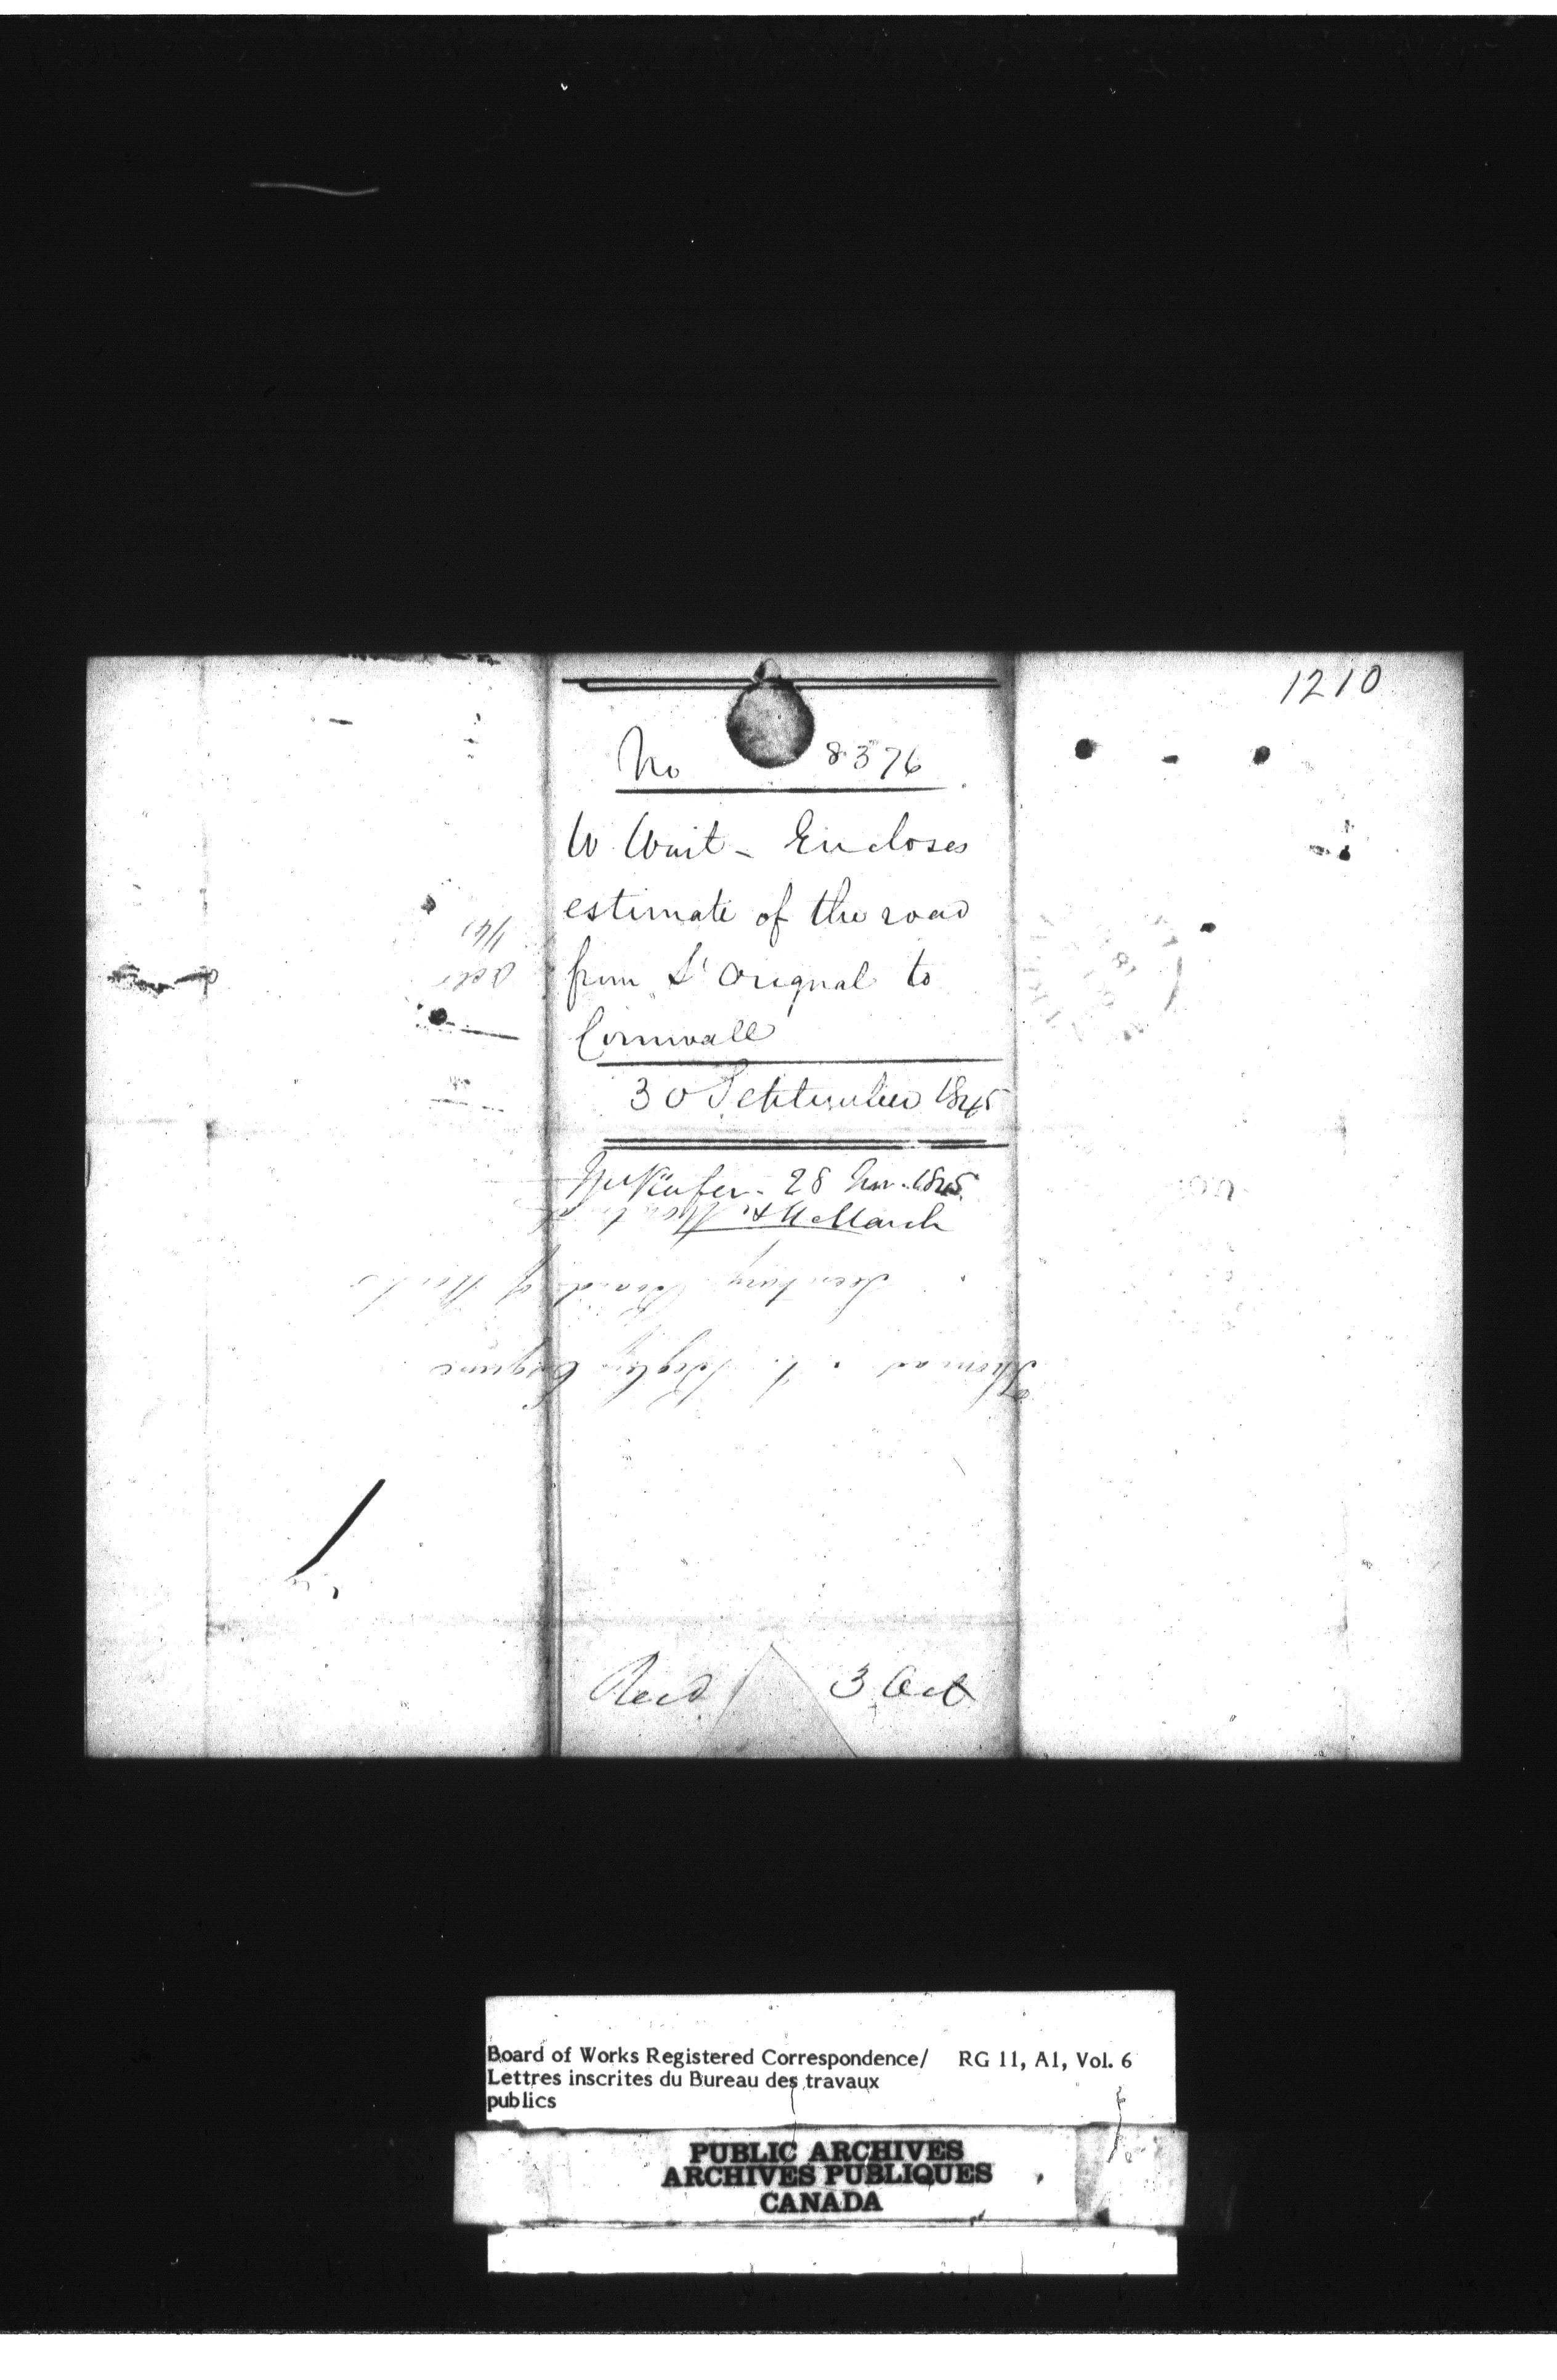 1210
No 8376
W. Wait - Encloses
estimate of the road
from L'Orignal to
Cornwall
30 September 1845
28 1845
Thomas A. Begly Esquire
Secretary Board of Works
Recd 3 Oct
Board of Works Registered Correspondence/ RG 11, A1, Vol. 6
Lettres inscrites du Bureau des travaux
publics
PUBLIC ARCHIVES
ARCHIVES PUBLIQUES
CANADA